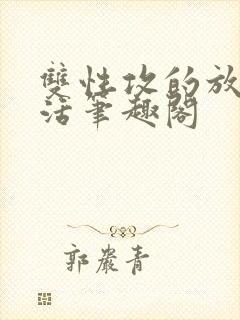 雙性攻的放
活筆趣閣
郭嚴青